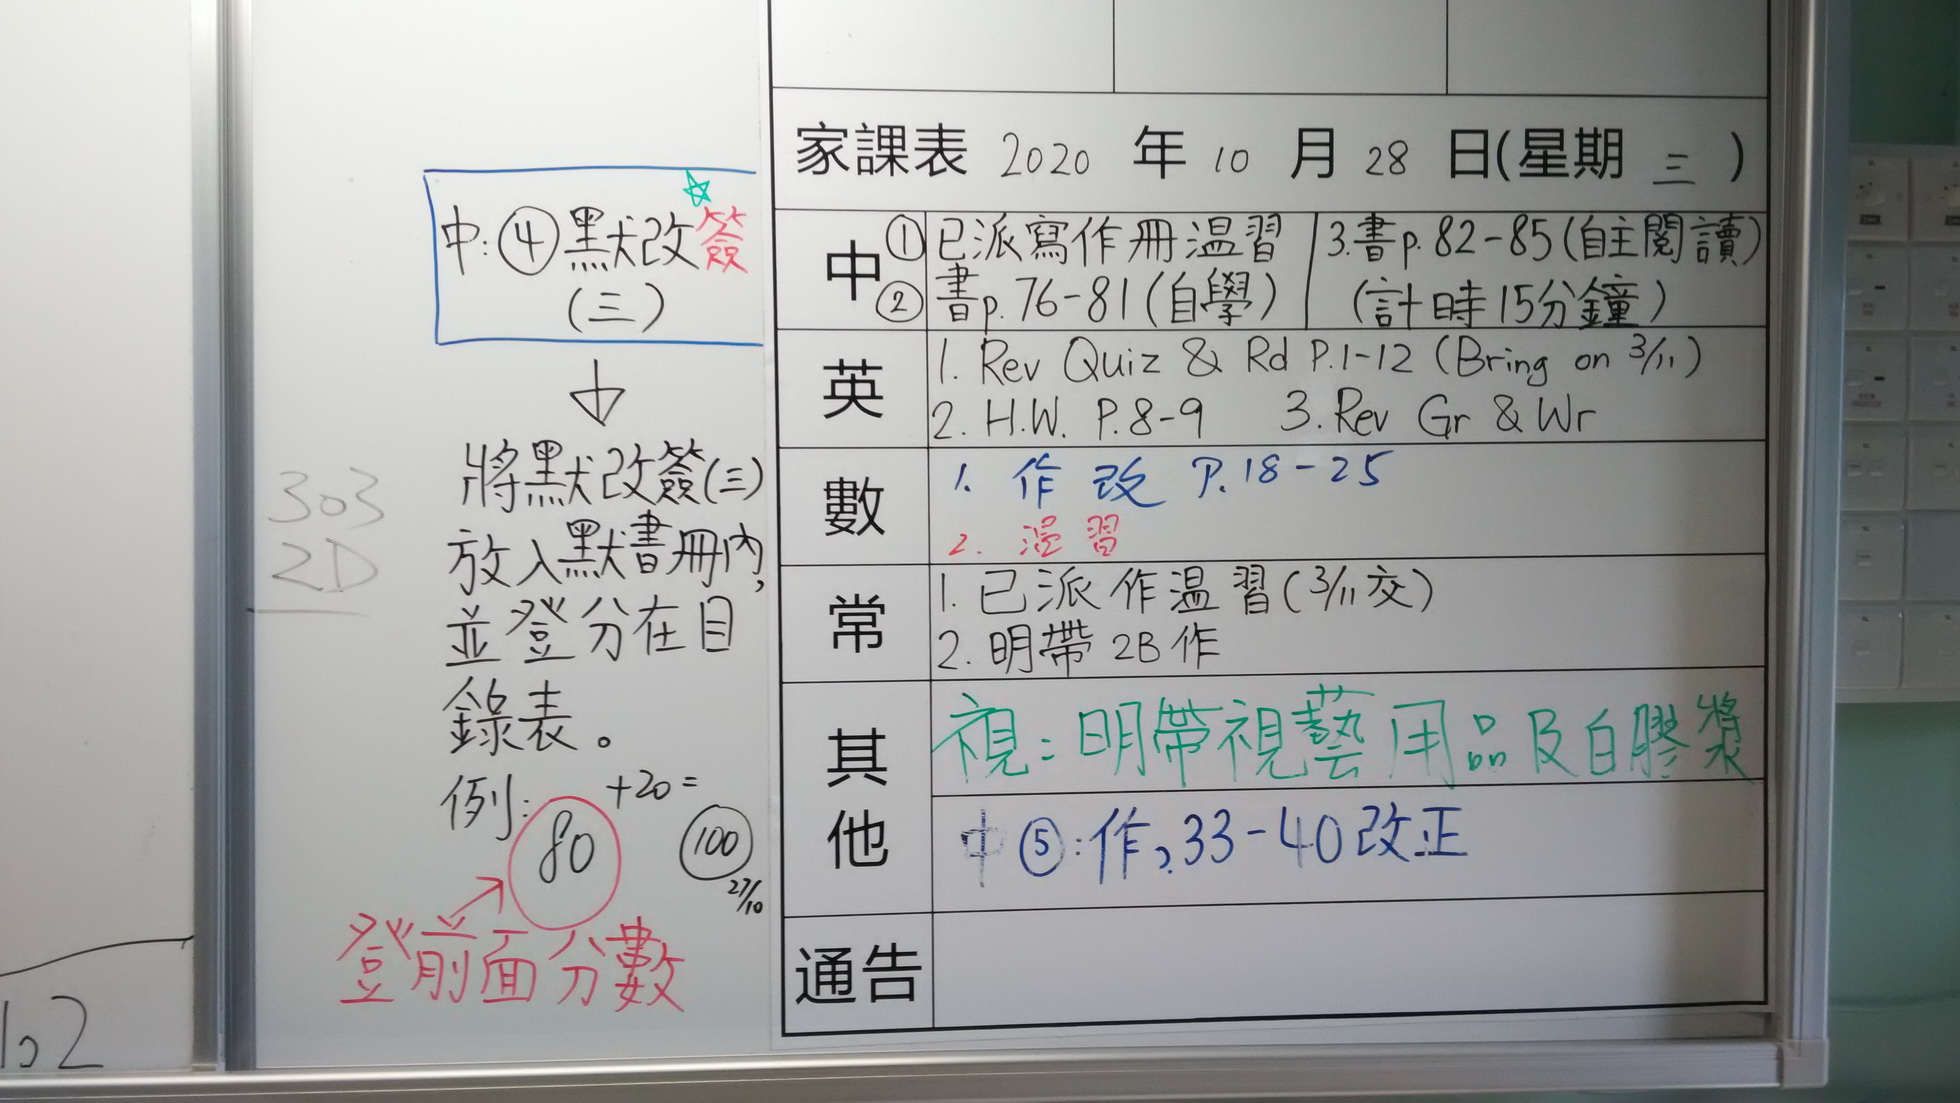 家課表 2020 年 10 月 28 日(星期 三 )
中 ① 已派寫作冊溫習
② 書p.76-81(自學)
3.書p.82-85(自主閱讀)
(計時15分鐘)
英 1. Rev Quiz & Rd P.1-12 (Bring on 3/11)
2. H.W. P.8-9 3. Rev Gr & Wr
數 1. 作 改 P.18-25
2. 溫習
常 1. 已派作溫習(3/11交)
2. 明帶 2B作
其他 視:明帶視藝用品及白膠漿
中⑤:作,33-40改正
通告
中:④默改簽
(三)
將默改簽(三)
放入默書冊內,
並登分在目
錄表。
例: 80 +20= 100
27/10
登前面分數
303
2D
102